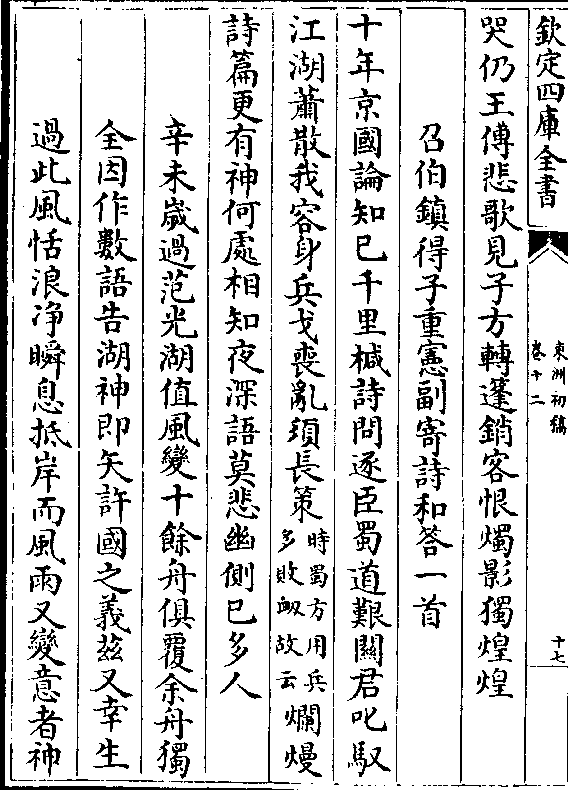 欽定四庫全書
東洲初稿
卷十二
十七
哭仍王傅悲歌見子方轉蓬銷客恨燭影獨煌煌
召伯鎮得子重憲副寄詩和答一首
十年京國論知已千里椷詩問逐臣蜀道艱關君叱馭
江湖蕭散我容身兵戈喪亂須長策時蜀方用兵多敗衂故云爛熳
詩篇更有神何處相知夜深語莫悲幽側已多人
辛未嵗過范光湖值風變十餘舟俱覆余舟獨
全因作數語告湖神即矢許國之義茲又幸生
過此風恬浪净瞬息抵岸而風雨又變意者神